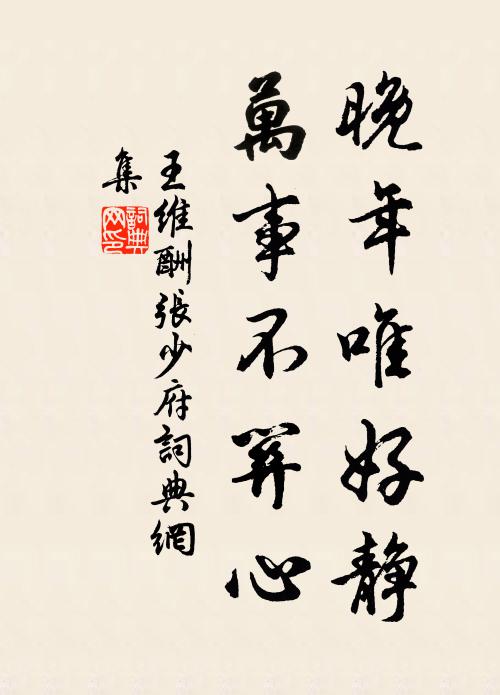 晚年唯好静
萬事不關心
王維酬張少府詞典網
集
詞典网印